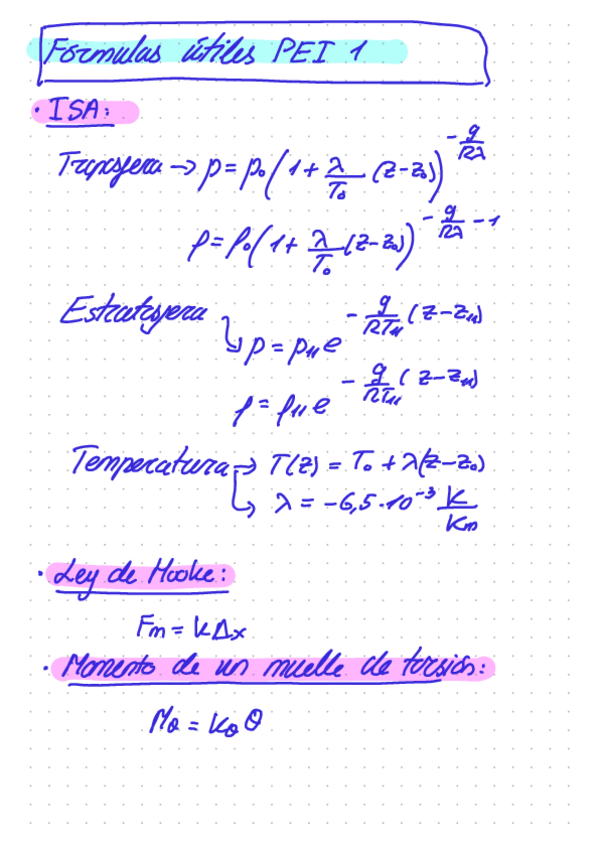 Formulas útiles PEI 1
· ISA:
Troposfera → p = p₀(1 + λ/T₀ (z-z₀))^(-g/(Rλ))
ρ = ρ₀(1 + λ/T₀ (z-z₀))^(-g/(Rλ) - 1)
Estratosfera ↳ p = p₁₁ e^(-g/(RT₁₁) (z-z₁₁))
ρ = ρ₁₁ e^(-g/(RT₁₁) (z-z₁₁))
Temperatura → T(z) = T₀ + λ(z-z₀)
↳ λ = -6,5·10⁻³ K/Km
· Ley de Hooke:
Fm = kΔx
· Momento de un muelle de torsión:
Mθ = kθ θ